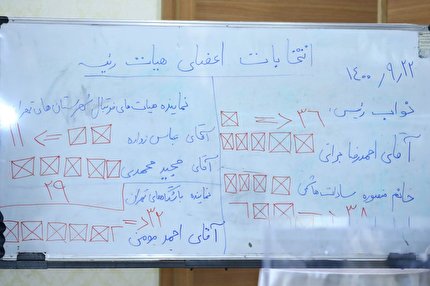 انتخابات اعضای هیات رئیسه
۱۴۰۰/۹/۲۲
نواب رئیس:
۳۶ <=
آقای احمدرضا براتی
خانم منصوره سادات هاشمی
۳۸ <=
نماینده هیات های فوتبال شهرستان های تهران
آقای عباس زواره
۱۱ <=
آقای مجید محمدی
۲۹
نماینده باشگاههای تهران
۳۲ <=
آقای احمد مومنی